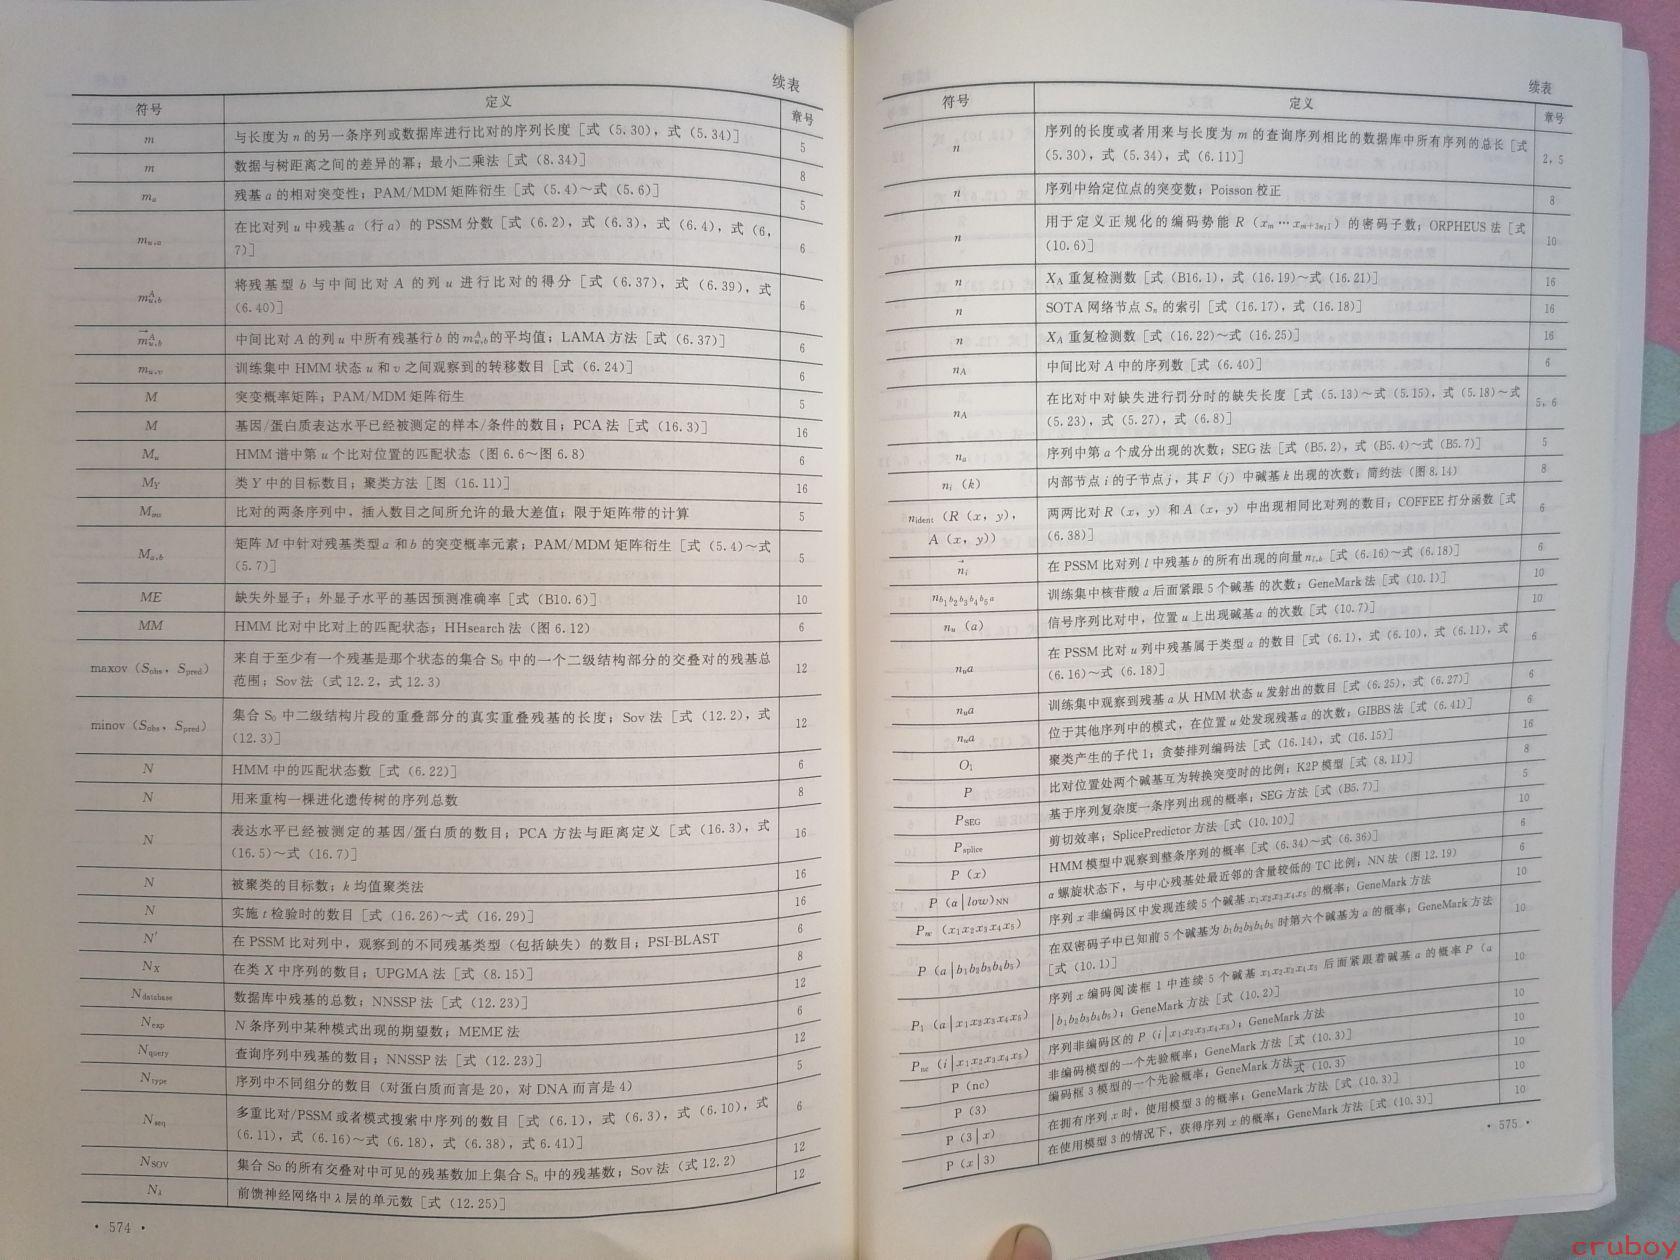 续表
符号 定义 章号
m 与长度为 n 的另一条序列或数据库进行比对的序列长度［式 (5.30)，式 (5.34)］ 5
m 数据与树距离之间的差异的幂；最小二乘法［式 (8.34)］ 8
mₐ 残基 a 的相对突变性；PAM/MDM 矩阵衍生［式 (5.4)～式 (5.6)］ 5
m_{u,a} 在比对列 u 中残基 a（行 a）的 PSSM 分数［式 (6.2)，式 (6.3)，式 (6.4)，式 (6,
7)］ 6
m^A_{u,b} 将残基型 b 与中间比对 A 的列 u 进行比对的得分［式 (6.37)，式 (6.39)，式
(6.40)］ 6
m^A_{u,b} 中间比对 A 的列 u 中所有残基行 b 的 m^A_{u,b} 的平均值；LAMA 方法［式 (6.37)］ 6
m_{u,v} 训练集中 HMM 状态 u 和 v 之间观察到的转移数目［式 (6.24)］ 6
M 突变概率矩阵；PAM/MDM 矩阵衍生 5
M 基因/蛋白质表达水平已经被测定的样本/条件的数目；PCA 法［式 (16.3)］ 16
M_u HMM 谱中第 u 个比对位置的匹配状态（图 6.6～图 6.8） 6
M_Y 类 Y 中的目标数目；聚类方法［图 (16.11)］ 16
M_{ins} 比对的两条序列中，插入数目之间所允许的最大差值；限于矩阵带的计算 5
M_{a,b} 矩阵 M 中针对残基类型 a 和 b 的突变概率元素；PAM/MDM 矩阵衍生［式 (5.4)～式
(5.7)］ 5
ME 缺失外显子；外显子水平的基因预测准确率［式 (B10.6)］ 10
MM HMM 比对中比对上的匹配状态；HHsearch 法（图 6.12） 6
maxov (S_{obs}, S_{pred}) 来自于至少有一个残基是那个状态的集合 S₀ 中的一个二级结构部分的交叠对的残基总
范围；Sov 法（式 12.2，式 12.3） 12
minov (S_{obs}, S_{pred}) 集合 S₀ 中二级结构片段的重叠部分的真实重叠残基的长度；Sov 法［式 (12.2)，式
(12.3)］ 12
N HMM 中的匹配状态数［式 (6.22)］ 6
N 用来重构一棵进化遗传树的序列总数 8
N 表达水平已经被测定的基因/蛋白质的数目；PCA 方法与距离定义［式 (16.3)，式
(16.5)～式 (16.7)］ 16
N 被聚类的目标数；k 均值聚类法 16
N 实施 t 检验时的数目［式 (16.26)～式 (16.29)］ 16
N′ 在 PSSM 比对列中，观察到的不同残基类型（包括缺失）的数目；PSI-BLAST 6
N_X 在类 X 中序列的数目；UPGMA 法［式 (8.15)］ 8
N_{database} 数据库中残基的总数；NNSSP 法［式 (12.23)］ 12
N_{exp} N 条序列中某种模式出现的期望数；MEME 法 6
N_{query} 查询序列中残基的数目；NNSSP 法［式 (12.23)］ 12
N_{type} 序列中不同组分的数目（对蛋白质而言是 20，对 DNA 而言是 4） 5
N_{seq} 多重比对/PSSM 或者模式搜索中序列的数目［式 (6.1)，式 (6.3)，式 (6.10)，式
(6.11)，式 (6.16)～式 (6.18)，式 (6.38)，式 6.41)］ 6
N_{SOV} 集合 So 的所有交叠对中可见的残基数加上集合 Sₙ 中的残基数；Sov 法（式 12.2） 12
N_λ 前馈神经网络中 λ 层的单元数［式 (12.25)］ 12
· 574 ·
续表
符号 定义 章号
n 序列的长度或者用来与长度为 m 的查询序列相比的数据库中所有序列的总长［式
(5.30)，式 (5.34)，式 (6.11)］ 2, 5
n 序列中给定位点的突变数；Poisson 校正 8
n 用于定义正规化的编码势能 R (x_m⋯x_{m+3n_l}) 的密码子数；ORPHEUS 法［式
(10.6)］ 10
n X_A 重复检测数［式 (B16.1)，式 (16.19)～式 (16.21)］ 16
n SOTA 网络节点 Sₙ 的索引［式 (16.17)，式 (16.18)］ 16
n X_A 重复检测数［式 (16.22)～式 (16.25)］ 16
n_A 中间比对 A 中的序列数［式 (6.40)］ 6
n_A 在比对中对缺失进行罚分时的缺失长度［式 (5.13)～式 (5.15)，式 (5.18)～式
(5.23)，式 (5.27)，式 (6.8)］ 5, 6
nₐ 序列中第 a 个成分出现的次数；SEG 法［式 (B5.2)，式 (B5.4)～式 (B5.7)］ 5
n_i (k) 内部节点 i 的子节点 j，其 F (j) 中碱基 k 出现的次数；简约法（图 8.14） 8
n_{ident} (R (x, y), 两两比对 R (x, y) 和 A (x, y) 中出现相同比对列的数目；COFFEE 打分函数［式
A (x, y)) (6.38)］ 6
n⃗_i 在 PSSM 比对列 l 中残基 b 的所有出现的向量 n_{l,b}［式 (6.16)～式 (6.18)］ 6
n_{b₁b₂b₃b₄b₅a} 训练集中核苷酸 a 后面紧跟 5 个碱基 的次数；GeneMark 法［式 (10.1)］ 10
n_u (a) 信号序列比对中，位置 u 上出现碱基 a 的次数［式 (10.7)］ 10
n_ua 在 PSSM 比对 u 列中残基属于类型 a 的数目［式 (6.1)，式 (6.10)，式 (6.11)，式
(6.16)～式 (6.18)］ 6
n_ua 训练集中观察到残基 a 从 HMM 状态 u 发射出的数目［式 (6.25)，式 (6.27)］ 6
n_ua 位于其他序列中的模式，在位置 u 处发现残基 a 的次数；GIBBS 法［式 (6.41)］ 6
O₁ 聚类产生的子代 1；贪婪排列编码法［式 (16.14)，式 (16.15)］ 16
P 比对位置处两个碱基互为转换突变时的比例；K2P 模型［式 (8.11)］ 8
P_{SEG} 基于序列复杂度一条序列出现的概率；SEG 方法［式 (B5.7)］ 5
P_{splice} 剪切效率；SplicePredictor 方法［式 (10.10)］ 10
P (x) HMM 模型中观察到整条序列的概率［式 (6.34)～式 (6.36)］ 6
P (a|low)_{NN} α 螺旋状态下，与中心残基处最近邻的含量较低的 TC 比例；NN 法（图 12.19） 6
P_{nc} (x₁x₂x₃x₄x₅) 序列 x 非编码区中发现连续 5 个碱基 x₁x₂x₃x₄x₅ 的概率；GeneMark 方法 10
P (a|b₁b₂b₃b₄b₅) 在双密码子中已知前 5 个碱基为 b₁b₂b₃b₄b₅ 时第六个碱基为 a 的概率；GeneMark 方法
［式 (10.1)］ 10
P₁ (a|x₁x₂x₃x₄x₅) 序列 x 编码阅读框 1 中连续 5 个碱基 x₁x₂x₃x₄x₅ 后面紧跟着碱基 a 的概率 P (a
|b₁b₂b₃b₄b₅)；GeneMark 方法［式 (10.2)］ 10
P_{nc} (i|x₁x₂x₃x₄x₅) 序列非编码区的 P (i|x₁x₂x₃x₄x₅)；GeneMark 方法 10
P (nc) 非编码模型的一个先验概率；GeneMark 方法［式 (10.3)］ 10
P (3) 编码框 3 模型的一个先验概率；GeneMark 方法式 (10.3) 10
P (3|x) 在拥有序列 x 时，使用模型 3 的概率；GeneMark 方法［式 (10.3)］ 10
P (x|3) 在使用模型 3 的情况下，获得序列 x 的概率；GeneMark 方法［式 (10.3)］ 10
· 575 ·
cruboy